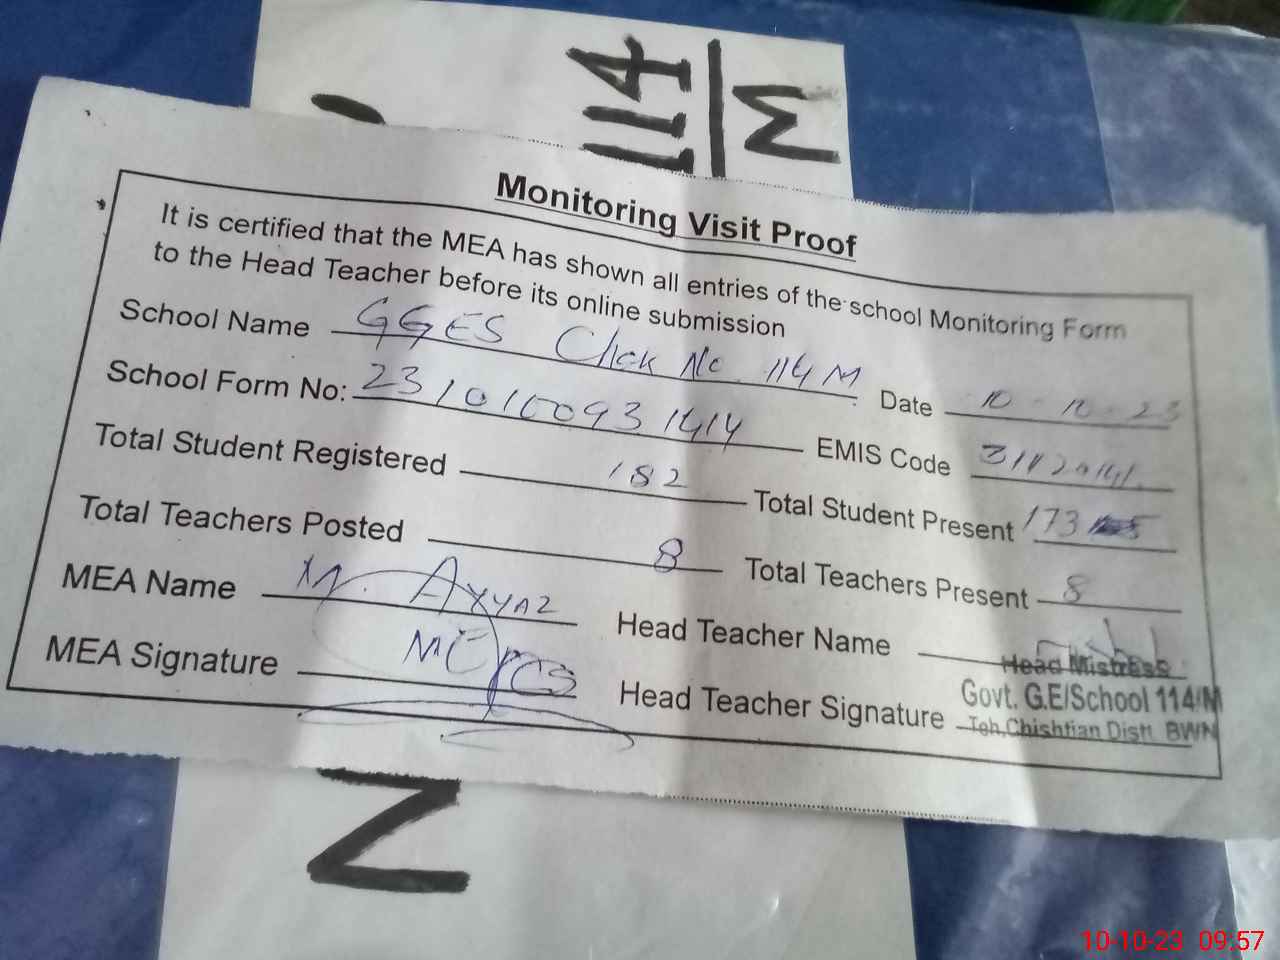 114
M
Monitoring Visit Proof
It is certified that the MEA has shown all entries of the school Monitoring Form
to the Head Teacher before its online submission
School Name GGES Chak No. 114 M Date 10-10-23
School Form No: 231010093 1414 EMIS Code
Total Student Registered 182 Total Student Present 173
Total Teachers Posted 8 Total Teachers Present 8
MEA Name M. Ayyaz Head Teacher Name
MEA Signature Head Teacher Signature
Head MistrEss
Govt. G.E/School 114/M
Teh.Chishtian Distt. BWN
N
10-10-23 09:57